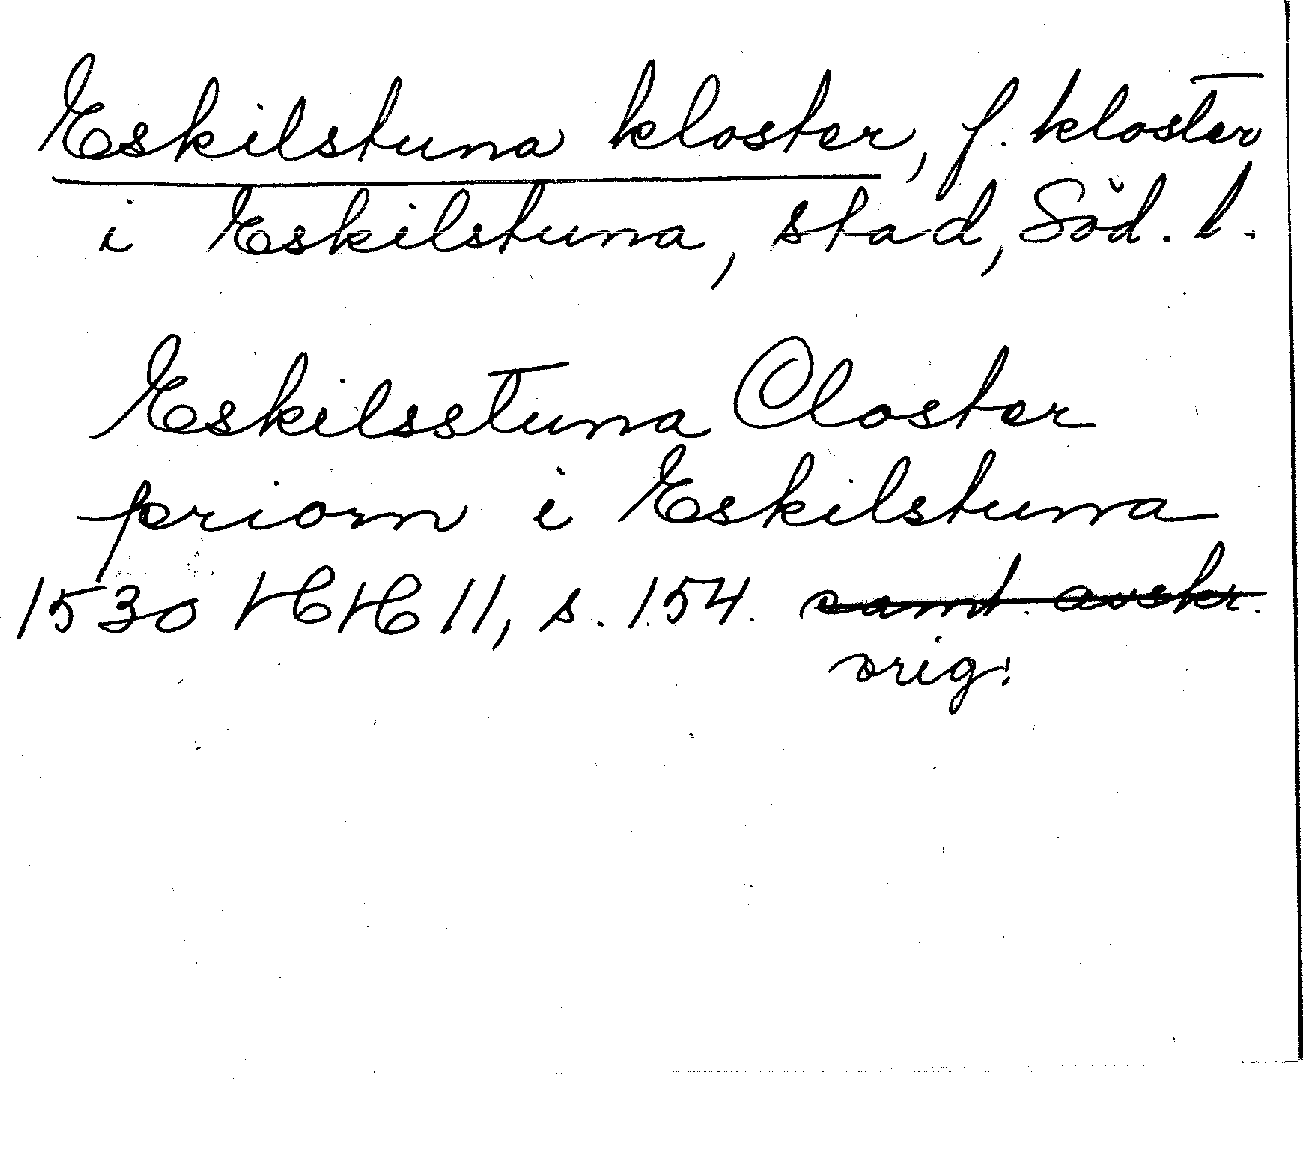 Eskilstuna kloster, f. kloster
i Eskilstuna, stad, Söd. l.
Eskilsstuna Closter
priorn i Eskilstuna
1530 HH 11, s. 154. samt. avskr.
orig.